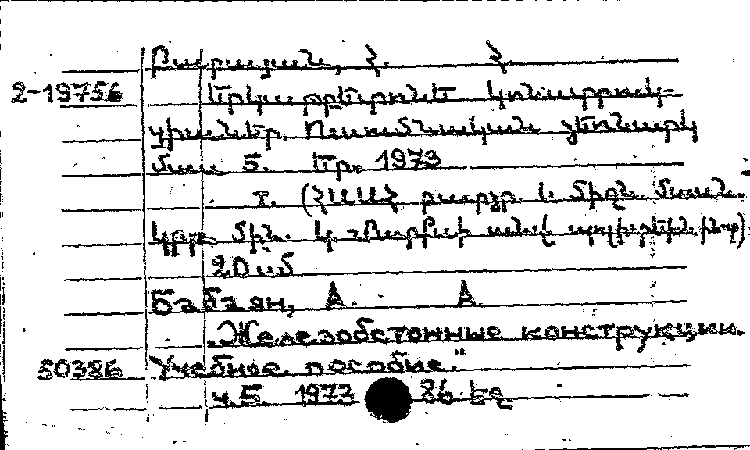 2-19756
Երկաթբետոնե կոնստրուկ-
ցիաներ. Ուսումնական ձեռնարկ
մաս 5. Եր. 1973
տ. (ՀՍՍՀ բարձր և միջն. մասն.
կրթ. մին. Կ. Մարքսի անվ. պոլիտեխն. ինստ)
20 սմ
Бабаян, А. А.
Железобетонные конструкции.
50386 Учебное пособие."
ч.5. 1973 86 եջ